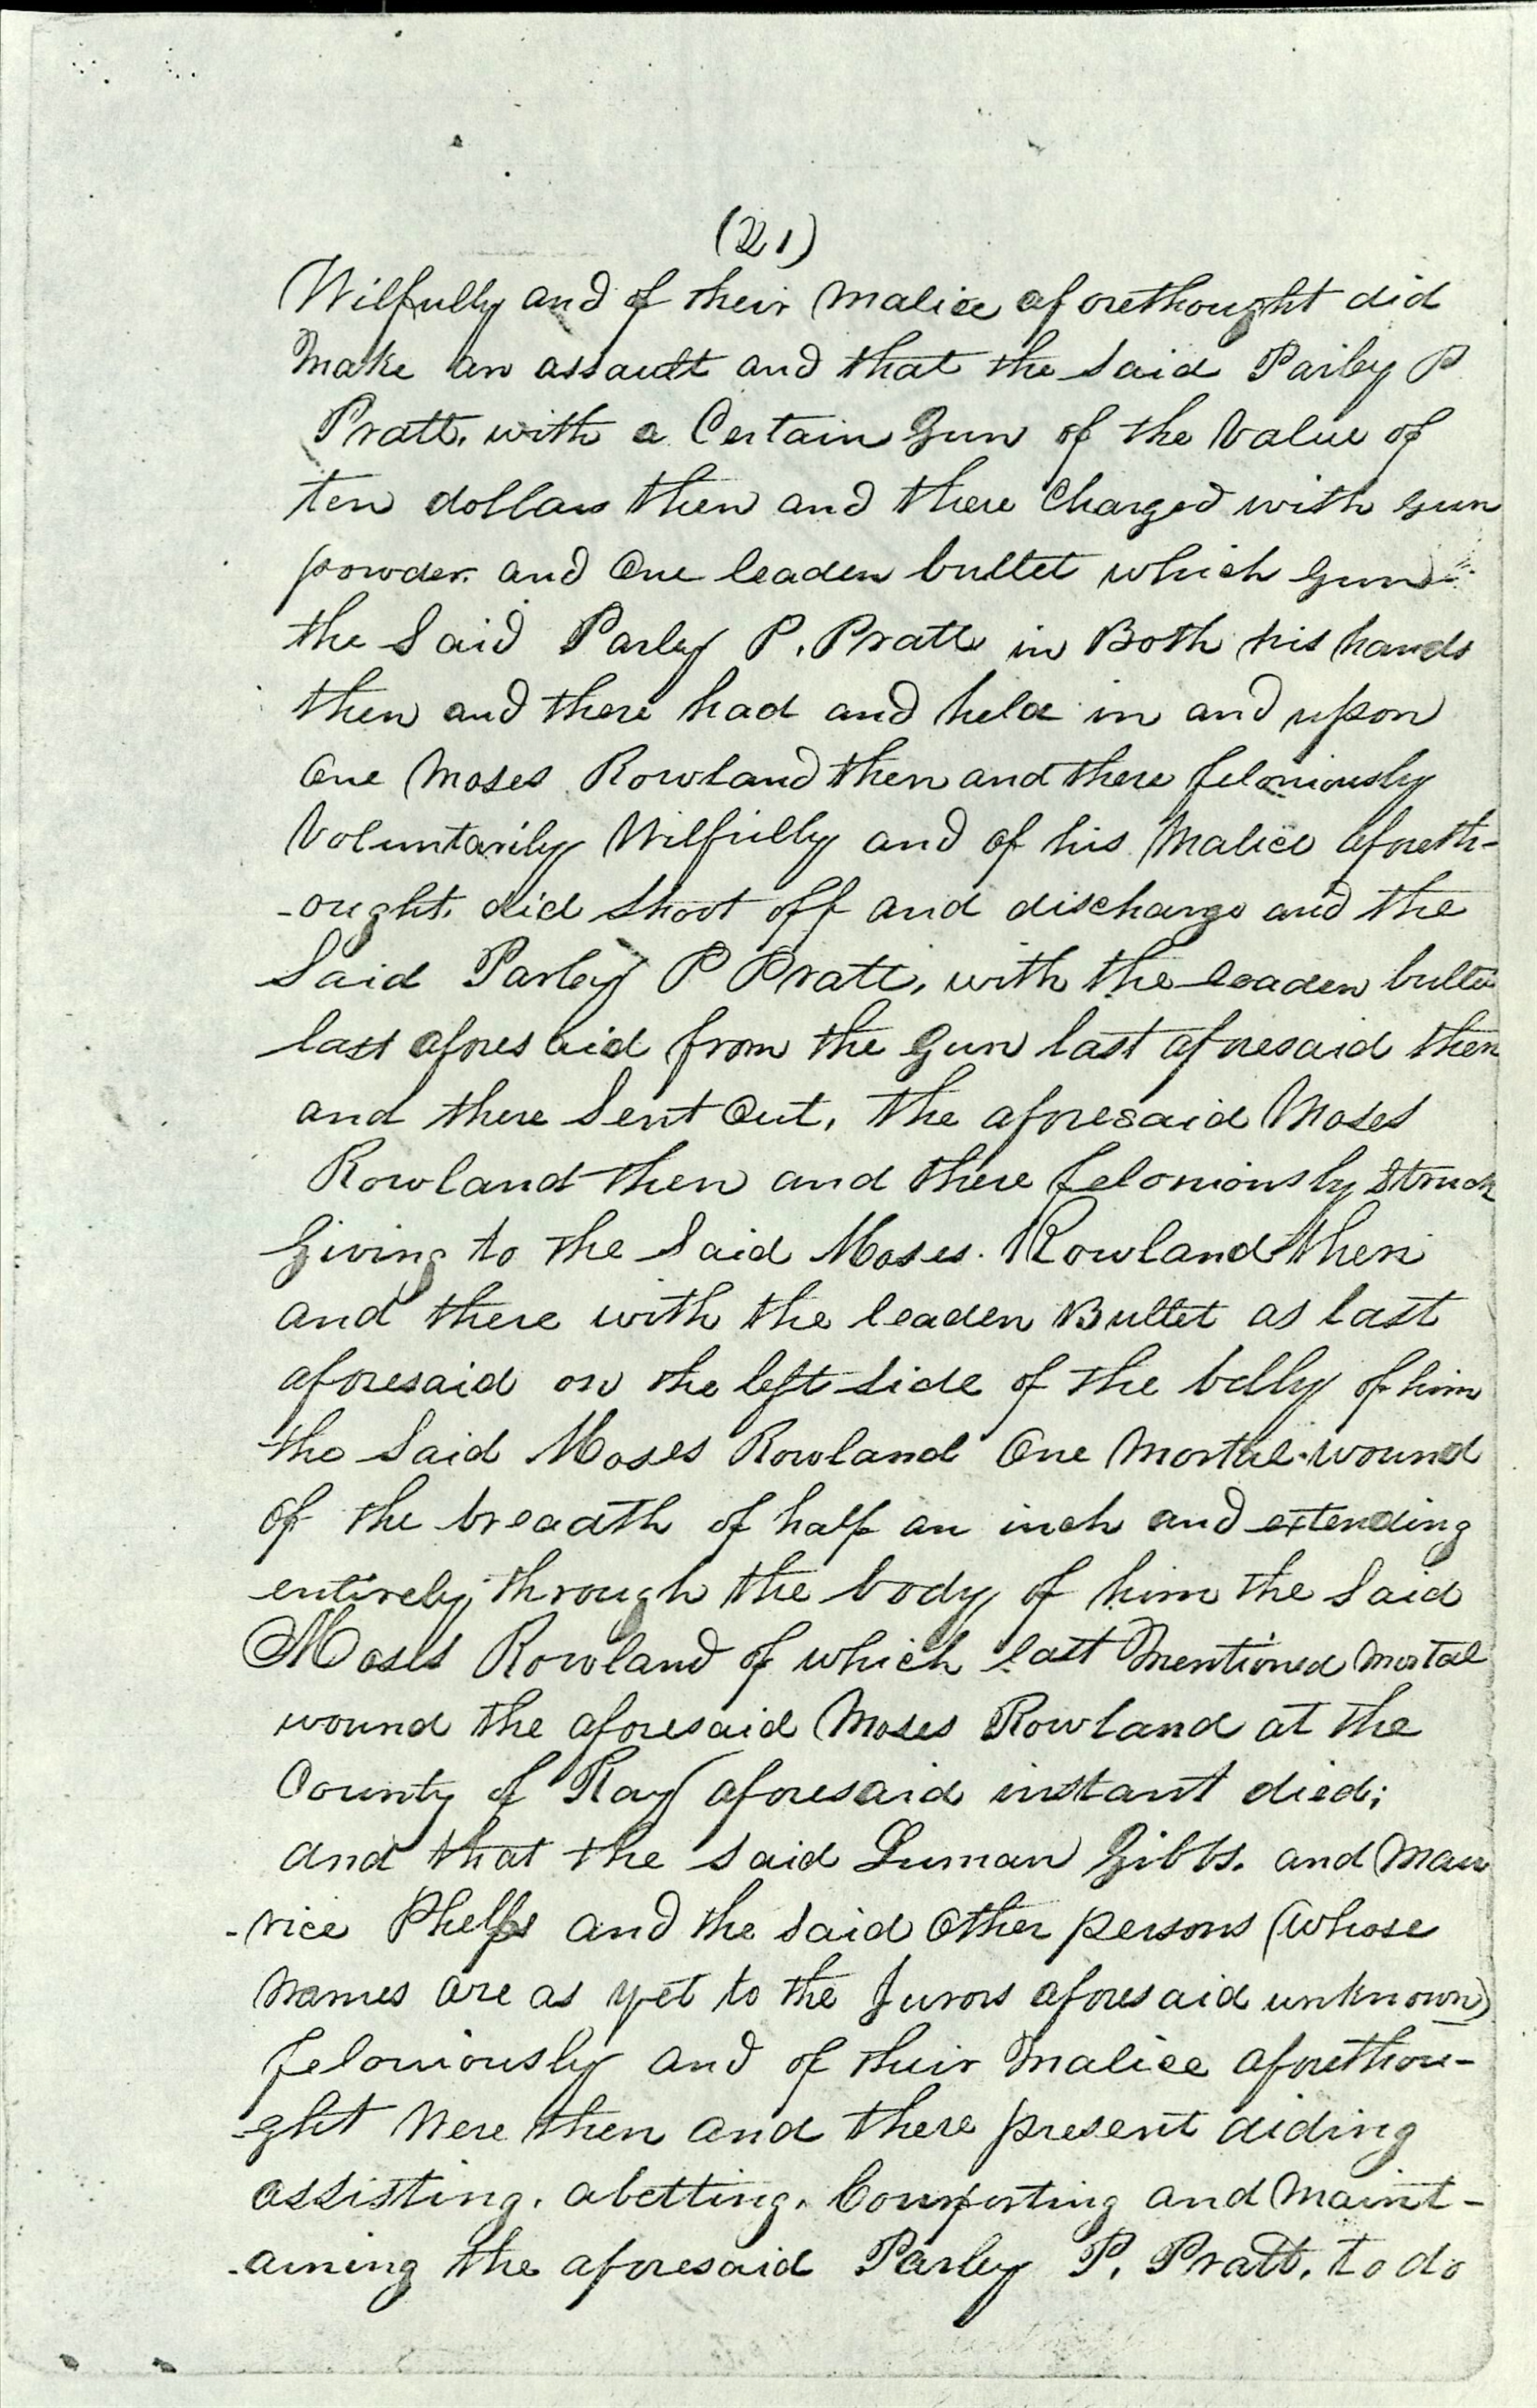 (21)
Wilfully and of their malice aforethought did
make an assault and that the said Parley P
Pratt, with a Certain Gun of the Value of
ten dollars then and there Charged with gun
powder and One leaden bullet which Gun
the Said Parley P. Pratt in Both his hands
then and there had and held in and upon
One Moses Rowland then and there feloniously
Voluntarily Wilfully and of his Malice aforeth-
-ought did shoot off and discharge and the
Said Parley P Pratt, with the leaden bullet
last aforesaid from the Gun last aforesaid then
and there Sent Out, the aforesaid Moses
Rowland then and there feloniously struck
Giving to the Said Moses Rowland then
and there with the leaden Bullet as last
aforesaid on the left side of the belly of him
the Said Moses Rowland One Mortal wound
of the breadth of half an inch and extending
entirely through the body of him the Said
Moses Rowland of which last Mentioned Mortal
wound the aforesaid Moses Rowland at the
County of Ray aforesaid instant died;
and that the said Luman Gibbs. and Mau
-rice Phelps and the said Other persons (whose
Names are as yet to the Jurors aforesaid unknown)
feloniously and of their Malice aforethou-
-ght Were then and there present aiding
assisting, abetting, Comforting and Maint-
-aining the aforesaid Parley P. Pratt, to do